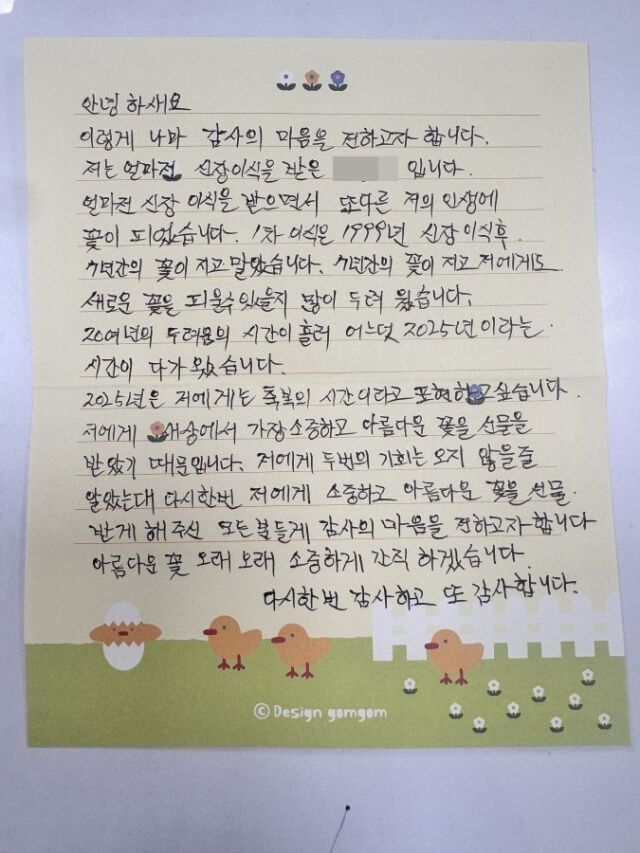 안녕 하세요
이렇게 나마 감사의 마음을 전하고자 합니다.
저는 얼마전 신장이식을 받은 입니다.
얼마전 신장 이식을 받으면서 또다른 저의 인생에
꽃이 피었습니다. 1차 이식은 1999년 신장 이식후.
7년간의 꽃이 지고 말았습니다. 7년간의 꽃이 지고 저에게도
새로운 꽃을 피울수 있을지 많이 두려 웠습니다.
20여년의 두려움의 시간이 흘러 어느덧 2025년 이라는
시간이 다가 왔습니다.
2025년은 저에게는 축복의 시간이라고 표현하고싶습니다.
저에게 세상에서 가장 소중하고 아름다운 꽃을 선물을
받았기 때문입니다. 저에게 두번의 기회는 오지 않을줄
알았는대 다시한번 저에게 소중하고 아름다운 꽃을 선물.
받게 해 주신 모든분들게 감사의 마음을 전하고자합니다
아름다운 꽃 오래 오래 소중하게 간직 하겠습니다.
다시한번 감사하고 또 감사합니다.
© Design gomgom